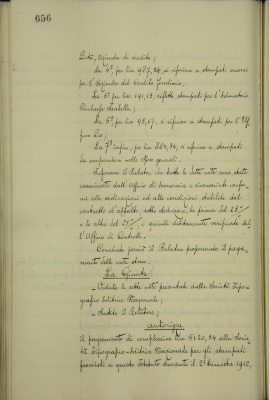 656
Dette, Aziende di credito;
La 4ª, per lire 927,84 si riferisce a stampati occorsi
per l'Azienda del Credito Fondiario;
La 5ª per lire 141,13, riflette stampati per l'
La 6ª, per lire 95,57, si riferisce a stampati per l'Uf
ficio Pio;
La 7ª infine, per lire 864,34, si riferisce a stampati
da comprendersi nelle spese generali.
Informa il Relatore che tutte le dette note sono state
esaminate dall'Ufficio di Economia e riscontrate confor
mi alle ordinazioni ed alle condizioni stabilite dal
contratto d'appalto, sotto deduzione, la prima del
e le altre del e quindi debitamente verificate dal
l'Ufficio di Controllo.
Conclude perciò il Relatore proponendo il paga-
mento delle note stesse.
La Giunta
Vedute le sette note presentate dalla Società Tipo-
grafico Editrice Nazionale;
Sentito il Relatore;
autorizza
il pagamento di complessive lire 5120,34 alla Socie
tà Tipografico-Editrice Nazionale per gli stampati
provvisti a questo Istituto durante il 2º trimestre 1912,